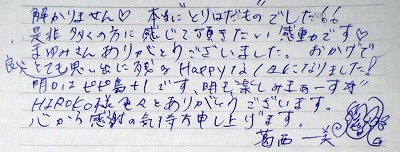 解かりません♡ 本当に とりはだものでした!!
是非 多くの方に 感じて頂きたい 感動です♡
まゆみさん ありがとうございました。おかげで
とても思い出に残る Happyな1日になりました!
明日は ピピ島+1です、明日も楽しみまぁーす
HIROKO様 色々とありがとうございます。
心から感謝の気持を申し上げます。
葛西 一美